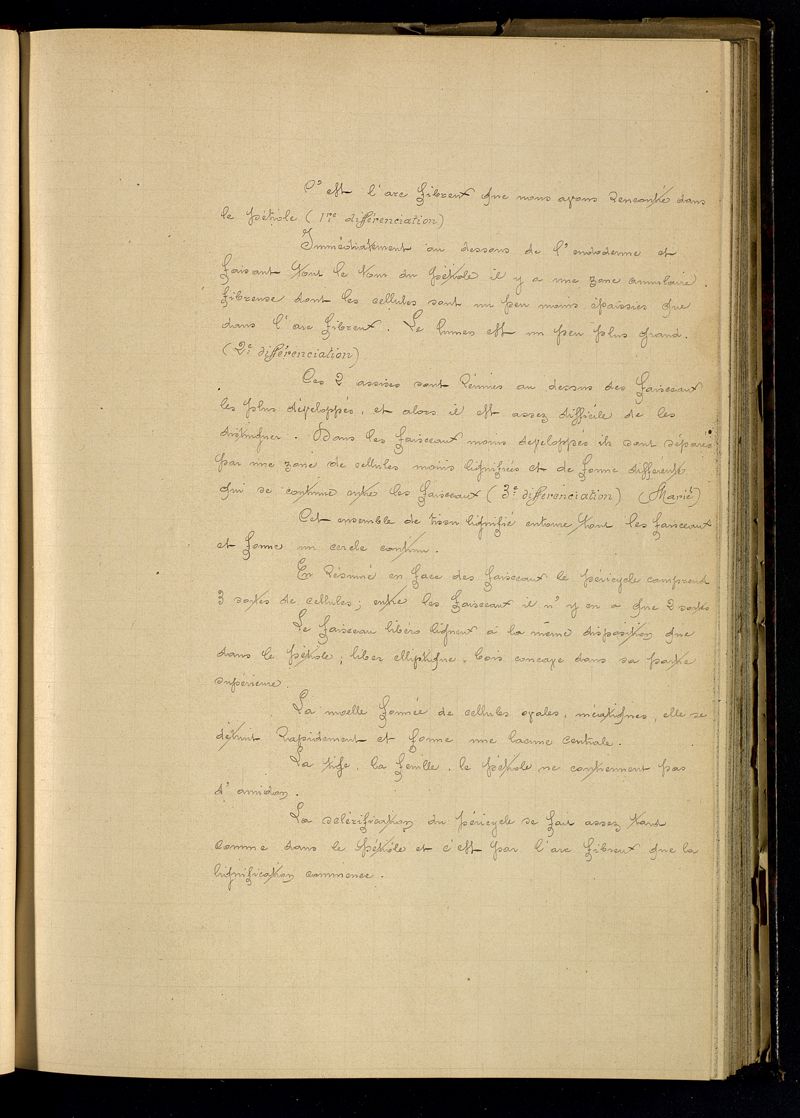 C'est l'arc fibreux que nous avons rencontré dans
le pétiole (1re différenciation)
Immédiatement au dessous de l'endoderme et
faisant tout le tour du pétiole il y a une zone annulaire
fibreuse dont les cellules sont un peu moins épaissies que
dans l'arc fibreux. Le lumen est un peu plus grand.
(2e différenciation)
Ces 2 assises sont réunies au dessus des faisceaux
les plus développés, et alors il est assez difficile de les
distinguer. Dans les faisceaux moins developpés ils sont séparés
par une zone de cellules moins lignifiés et de forme différente
qui se continue entre les faisceaux (3e différenciation) (Marié)
Cet ensemble de tissu lignifié entoure tout les faisceaux
et forme un cercle continu.
En Résumé en face des faisceaux le péricycle comprend
3 sortes de cellules; entre les faisceaux il n'y en a que 2 sortes
Le faisceau libéro ligneux a la même disposition que
dans le pétiole, liber elliptique, bois concave dans sa partie
supérieure.
La moelle formée de cellules ovales, méatiques, elle se
détruit rapidement et forme une lacune centrale.
La tige, la feuille, le pétiole ne contiennent pas
d'amidon.
La sclérification du péricycle se fait assez tard
comme dans le pétiole et c'est par l'arc fibreux que la
lignification commence.